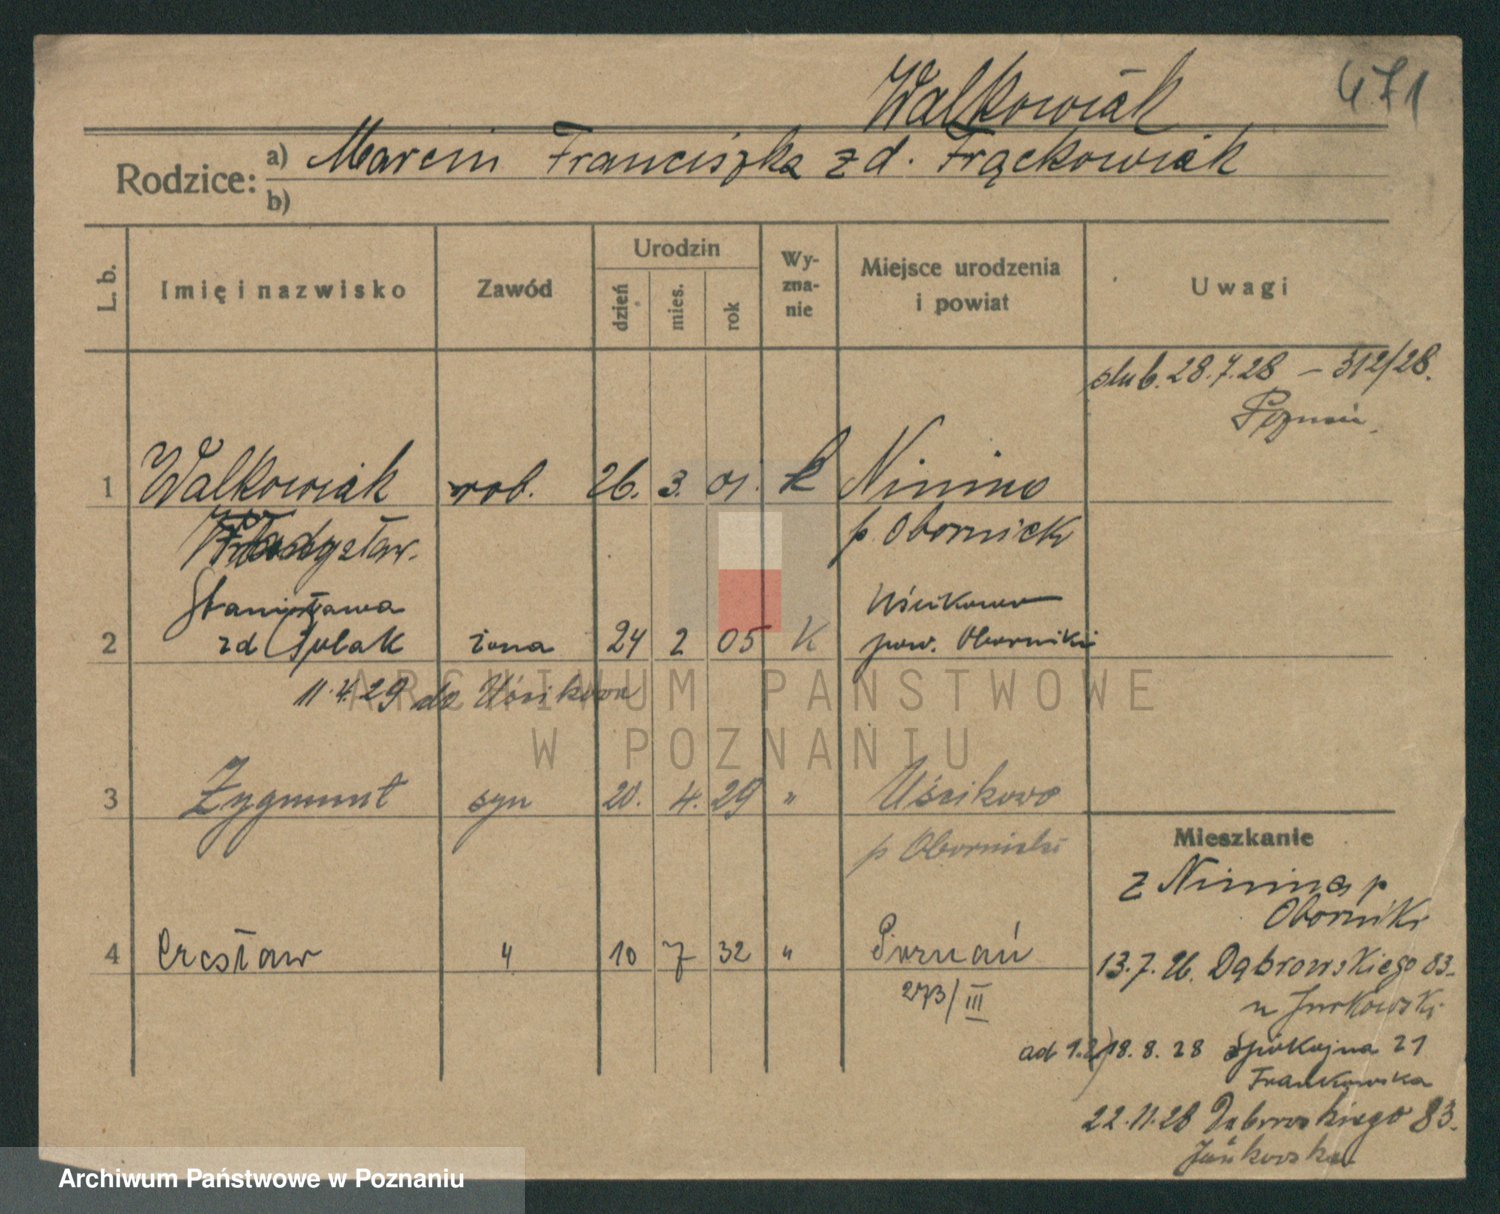 Walkowiak
471
Rodzice: a) Marcin Franciszka z d. Frąckowiak
b)
L. b.
Imię i nazwisko
Zawód
Urodzin
dzień
mies.
rok
Wyznanie
Miejsce urodzenia i powiat
Uwagi
ślub. 28.7.28 – 312/28.
Poznań.
1 Walkowiak rob. 26. 3. 01. k Ninino
Władysław. p Obornicki
Stanisława Uścikowo
2 zd Polak żona 24 2 05 K pow. Oborniki
11.4.29 do Uścikowa
3 Zygmunt syn 20. 4. 29 " Uścikowo
p Obornicki
Mieszkanie
z Ninina p
Oborniki
4 Czesław " 10 7 32 " Poznań
273/III
13.7.26. Dąbrowskiego 83.
u Jurkowski
ad 1.2) 18.8.28 Spokojna 21
Frankowska
22.11.28 Dąbrowskiego 83.
ARCHIWUM PAŃSTWOWE
W POZNANIU
Archiwum Państwowe w Poznaniu